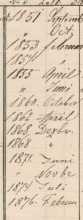 1851 Septemb
" Oct
1853 Februar
1854 "
1855 April
" Juni
1860 Octobe
1862 April
1868 Decbr
1868 "
1871 Juni
" Novbr
1874 Juli
1876 Februa